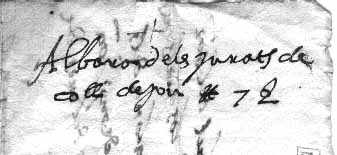 Albaran dels jurats de
coll dejou # 7 £